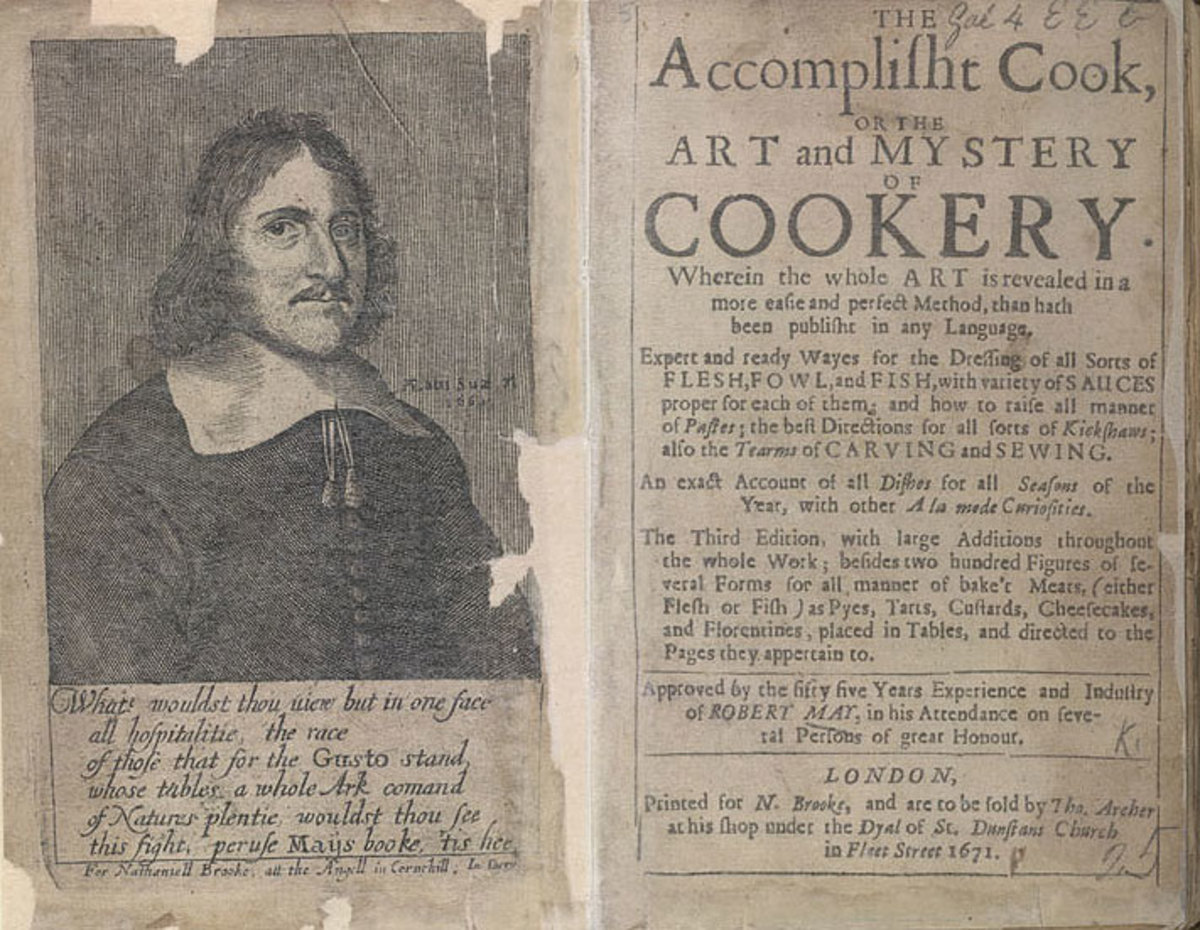 Ætatis Suæ 71
What! wouldst thou uiew but in one face
all hoſpitalitie, the race
of thoſe that for the Gusto stand,
whose tables a whole Ark comand
of Natures plentie, wouldst thou ſee
this ſight, peruſe Mays booke, 'tis hee.
For Nathaniell Brooke, att the Angell in Cornehill.
THE
Accompliſht Cook,
OR THE
ART and MYSTERY
OF
COOKERY.
Wherein the whole ART is revealed in a
more eaſie and perfect Method, than hath
been publiſht in any Language.
Expert and ready Wayes for the Dreſſing of all Sorts of
FLESH, FOWL, and FISH, with variety of SAUCES
proper for each of them; and how to raiſe all manner
of Paſtes; the beſt Directions for all ſorts of Kickſhaws;
alſo the Tearms of CARVING and SEWING.
An exact Account of all Diſhes for all Seaſons of the
Year, with other A la mode Curioſities.
The Third Edition, with large Additions throughout
the whole Work; beſides two hundred Figures of ſe-
veral Forms for all manner of bake't Meats, (either
Fleſh or Fiſh) as Pyes, Tarts, Cuſtards, Cheeſecakes,
and Florentines, placed in Tables, and directed to the
Pages they appertain to.
Approved by the fifty five Years Experience and Induſtry
of ROBERT MAY, in his Attendance on ſeve-
ral Perſons of great Honour.
LONDON,
Printed for N. Brooke, and are to be ſold by Tho. Archer
at his ſhop under the Dyal of St. Dunſtans Church
in Fleet Street 1671.